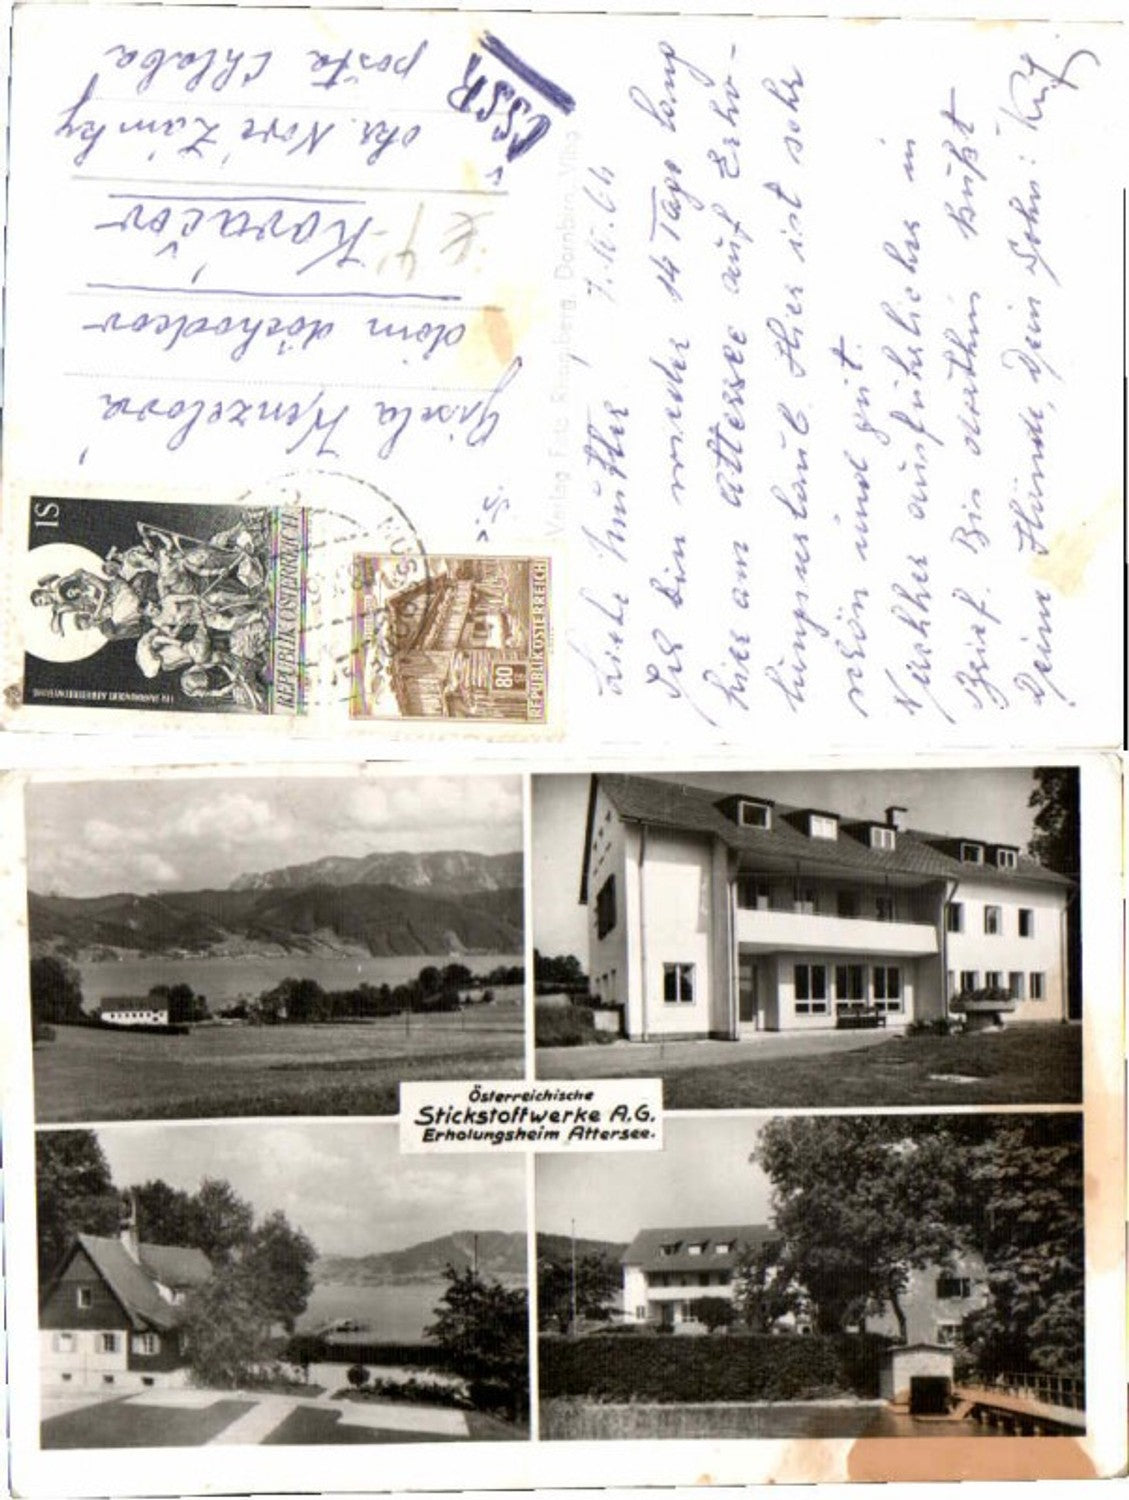 7. IX. 64
Liebe Mutter
Ich bin wieder 14 Tage lang
hier am Attersee auf Erho-
lungsurlaub. Hier ist sehr
schön und gut.
Nachher ausführlicher im
Brief. Bis dorthin küßt
Deine Hände, Dein Sohn:
Verlag Foto Risch-Lau, Dornbirn
Gisela Kenzelova
dóm dôchodcov
Kováčov
okr. Nové Zámky
pošta Chlaba
ČSSR
1S
REPUBLIK ÖSTERREICH
80
REPUBLIK ÖSTERREICH
Österreichische
Stickstoffwerke A.G.
Erholungsheim Attersee.